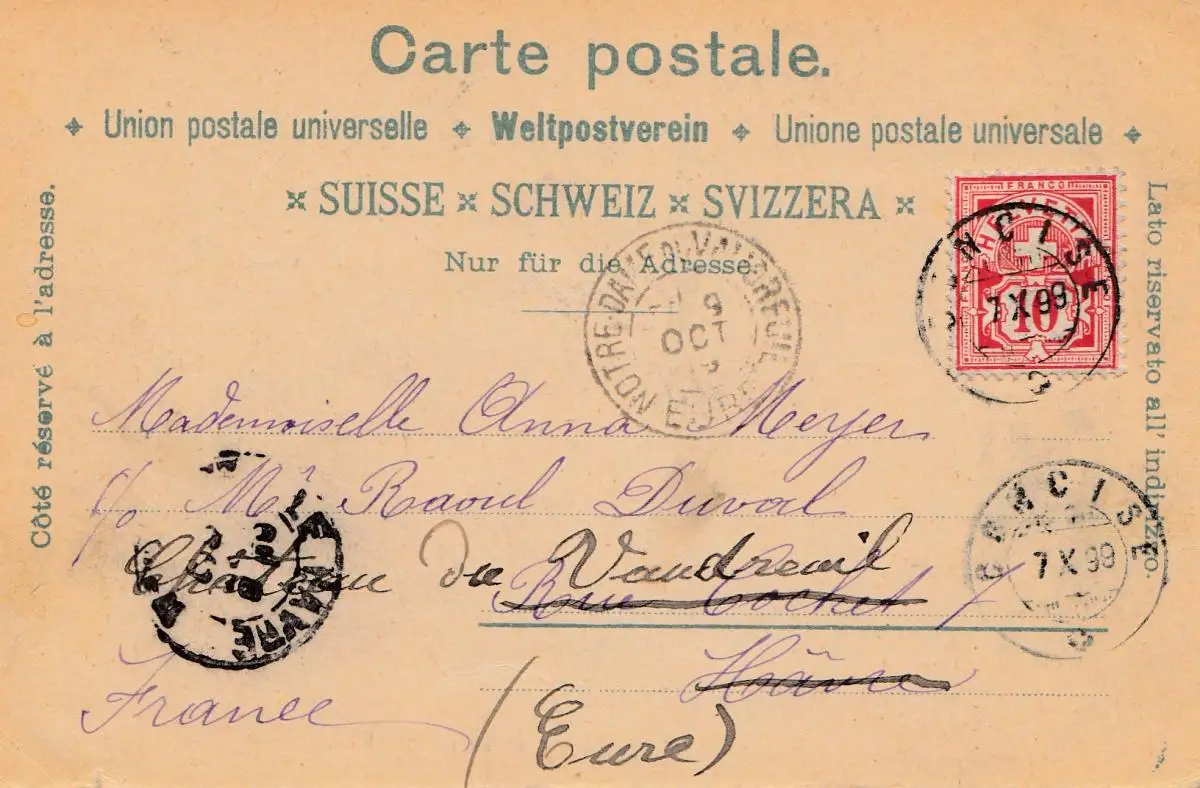 Carte postale.
Union postale universelle Weltpostverein Unione postale universale
SUISSE SCHWEIZ SVIZZERA
Nur für die Adresse.
Côté réservé à l'adresse.
Lato riservato all' indirizzo.
FRANCO
HELVETIA
10
CONCISE
7 X 99
NOTRE-DAME-DU-VAUDREUIL
9
OCT
EURE
Mademoiselle Anna Meyer
c/o Mr Raoul Duval
Château du Vaudreuil
Rue 7
Hâvre
France
(Eure)
CONCISE
7 X 99
HAVRE